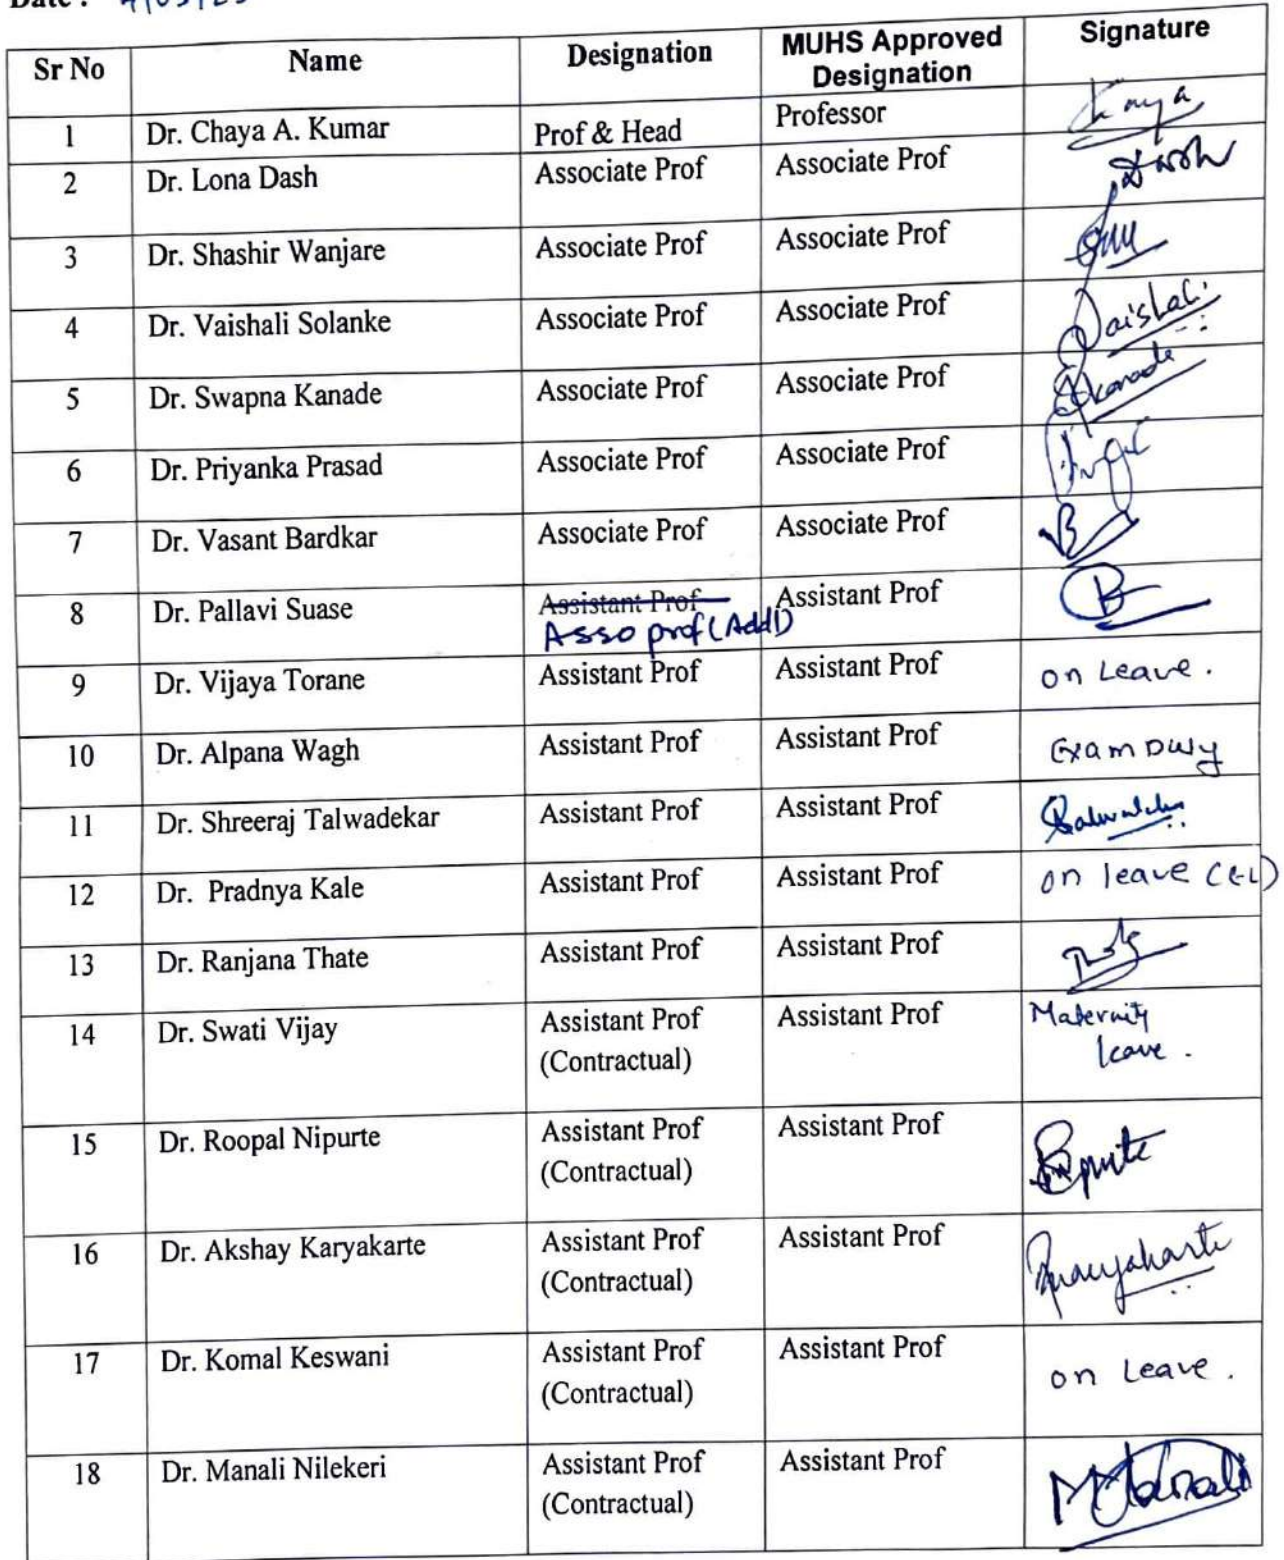 Date :
Sr No Name Designation MUHS Approved Designation Signature
1 Dr. Chaya A. Kumar Prof & Head Professor
2 Dr. Lona Dash Associate Prof Associate Prof
3 Dr. Shashir Wanjare Associate Prof Associate Prof
4 Dr. Vaishali Solanke Associate Prof Associate Prof Vaishali
5 Dr. Swapna Kanade Associate Prof Associate Prof Skanade
6 Dr. Priyanka Prasad Associate Prof Associate Prof
7 Dr. Vasant Bardkar Associate Prof Associate Prof
8 Dr. Pallavi Suase Assistant Prof Assistant Prof
Asso prof (Addl)
9 Dr. Vijaya Torane Assistant Prof Assistant Prof on Leave.
10 Dr. Alpana Wagh Assistant Prof Assistant Prof Exam Duty
11 Dr. Shreeraj Talwadekar Assistant Prof Assistant Prof
12 Dr. Pradnya Kale Assistant Prof Assistant Prof on leave
13 Dr. Ranjana Thate Assistant Prof Assistant Prof
14 Dr. Swati Vijay Assistant Prof Assistant Prof Maternity
(Contractual) leave.
15 Dr. Roopal Nipurte Assistant Prof Assistant Prof
(Contractual)
16 Dr. Akshay Karyakarte Assistant Prof Assistant Prof
(Contractual)
17 Dr. Komal Keswani Assistant Prof Assistant Prof on Leave.
(Contractual)
18 Dr. Manali Nilekeri Assistant Prof Assistant Prof
(Contractual)